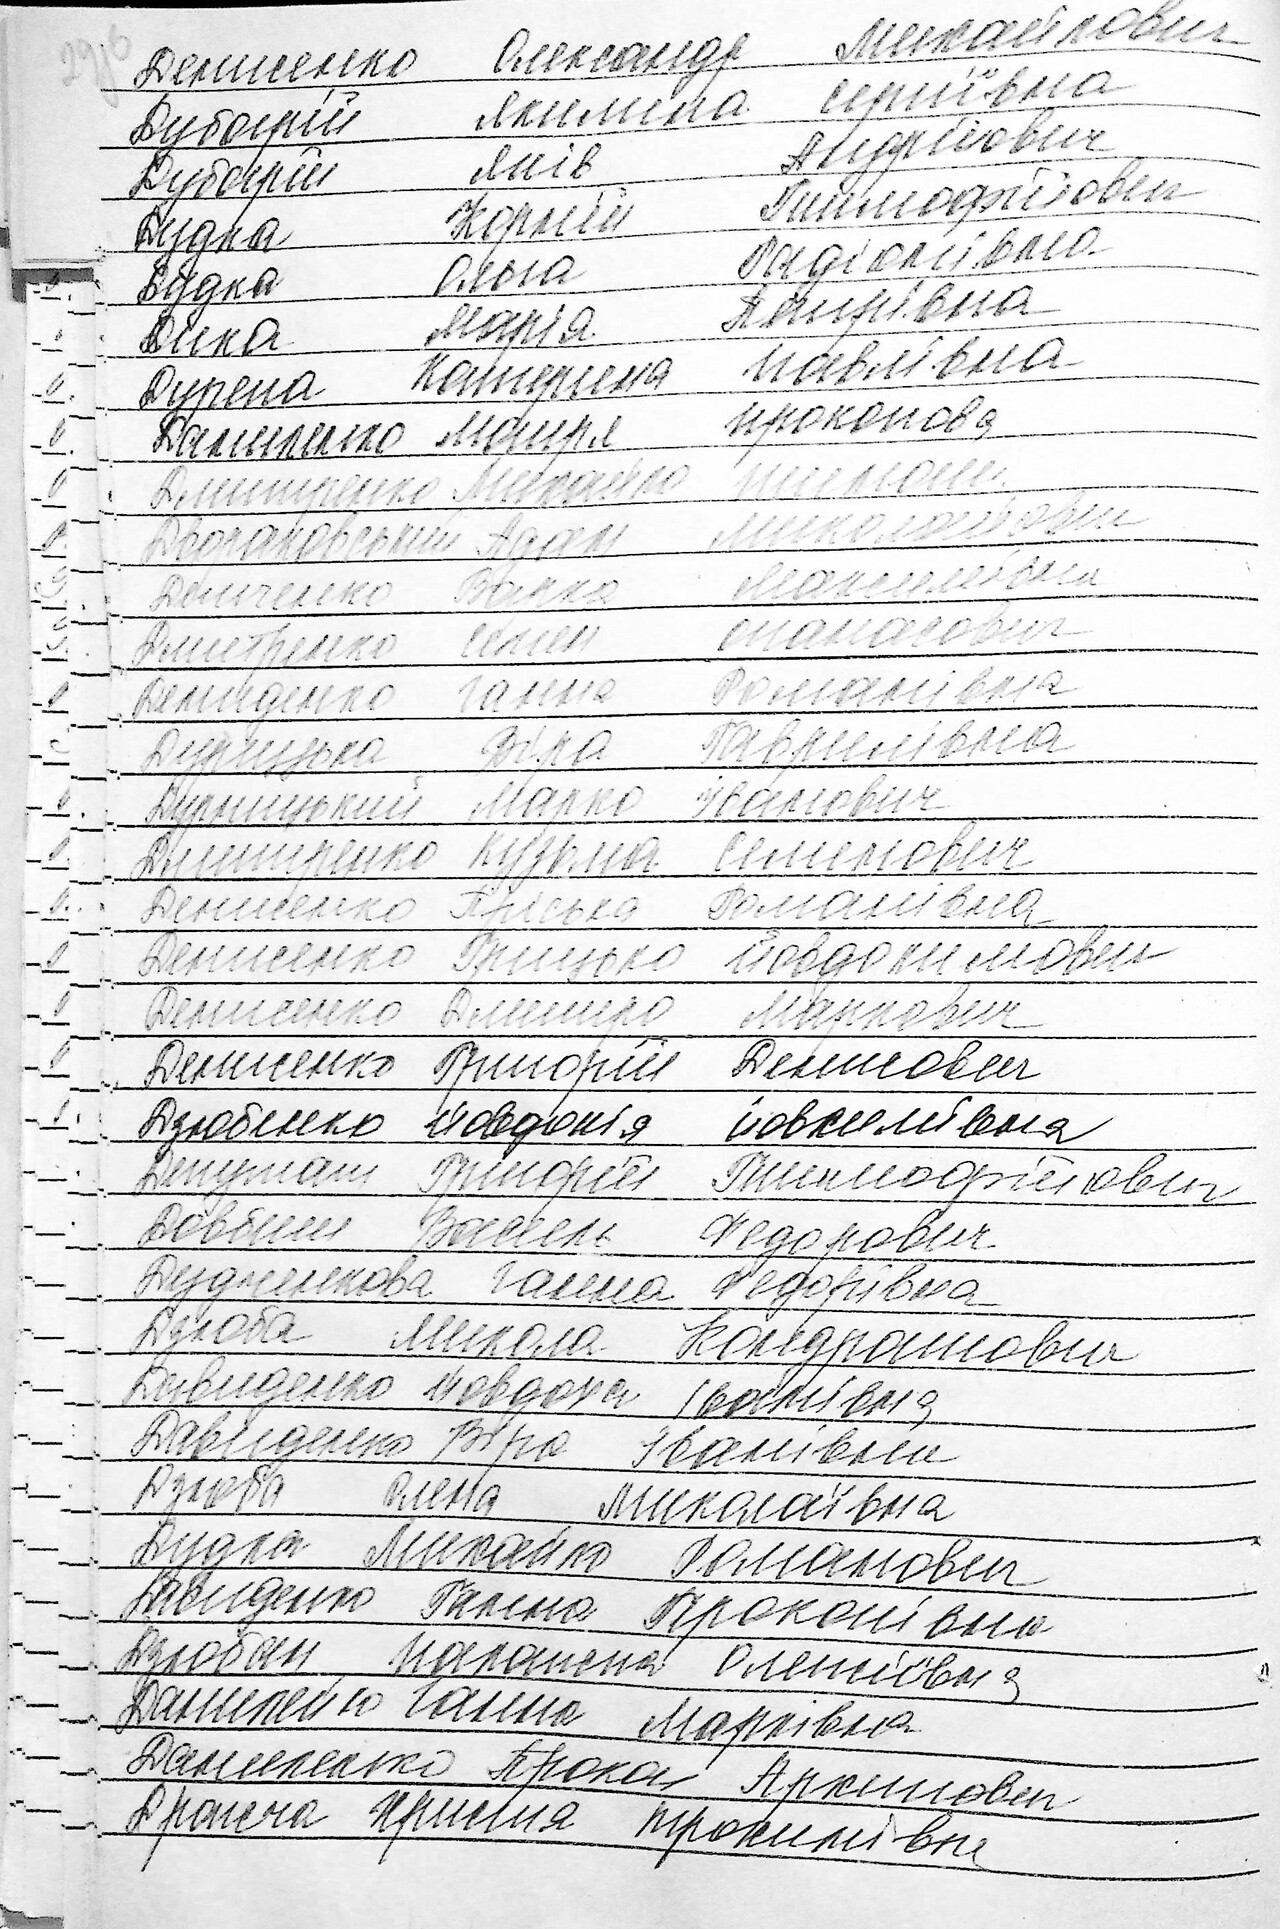 Денисенко Олександр Михайлович
Дубогрій Якилина Сергіївна
Дубогрій Яків Андрійович
Дудка Корній Тимофійович
Дудка Ольга Радіонівна
Дика Марія Андріївна
Дурена Катерина Павлівна
Даниленко Мотря Прокопова
Дмитренко Михайло
Адам Миколайович
Демченко Максимівна
Дмитренко Семен Опанасович
Демиденко Ганна Романівна
Віра Гаврилівна
Марко Іванович
Дмитренко Кузьма Семенович
Денисенко Пріська Романівна
Денисенко Грицько Йовдокимович
Денисенко Дмитро Маркович
Денисенко Григорій Денисович
Дзюбенко Йовдокія Йовхимівна
Григорій Тимофійович
Довбиш Василь Федорович
Ганна Федорівна
Дзюба Микола Кондратович
Давиденко Йовдоха Іванівна
Давиденко Віра Іванівна
Дзюба Олена Миколаївна
Дудка Михайло Романович
Давиденко Ганна Прокопівна
Дзюбан Параска Олексіївна
Даниленко Ганна Марківна
Даниленко Прокоп Архипович
Христя Трохимівна